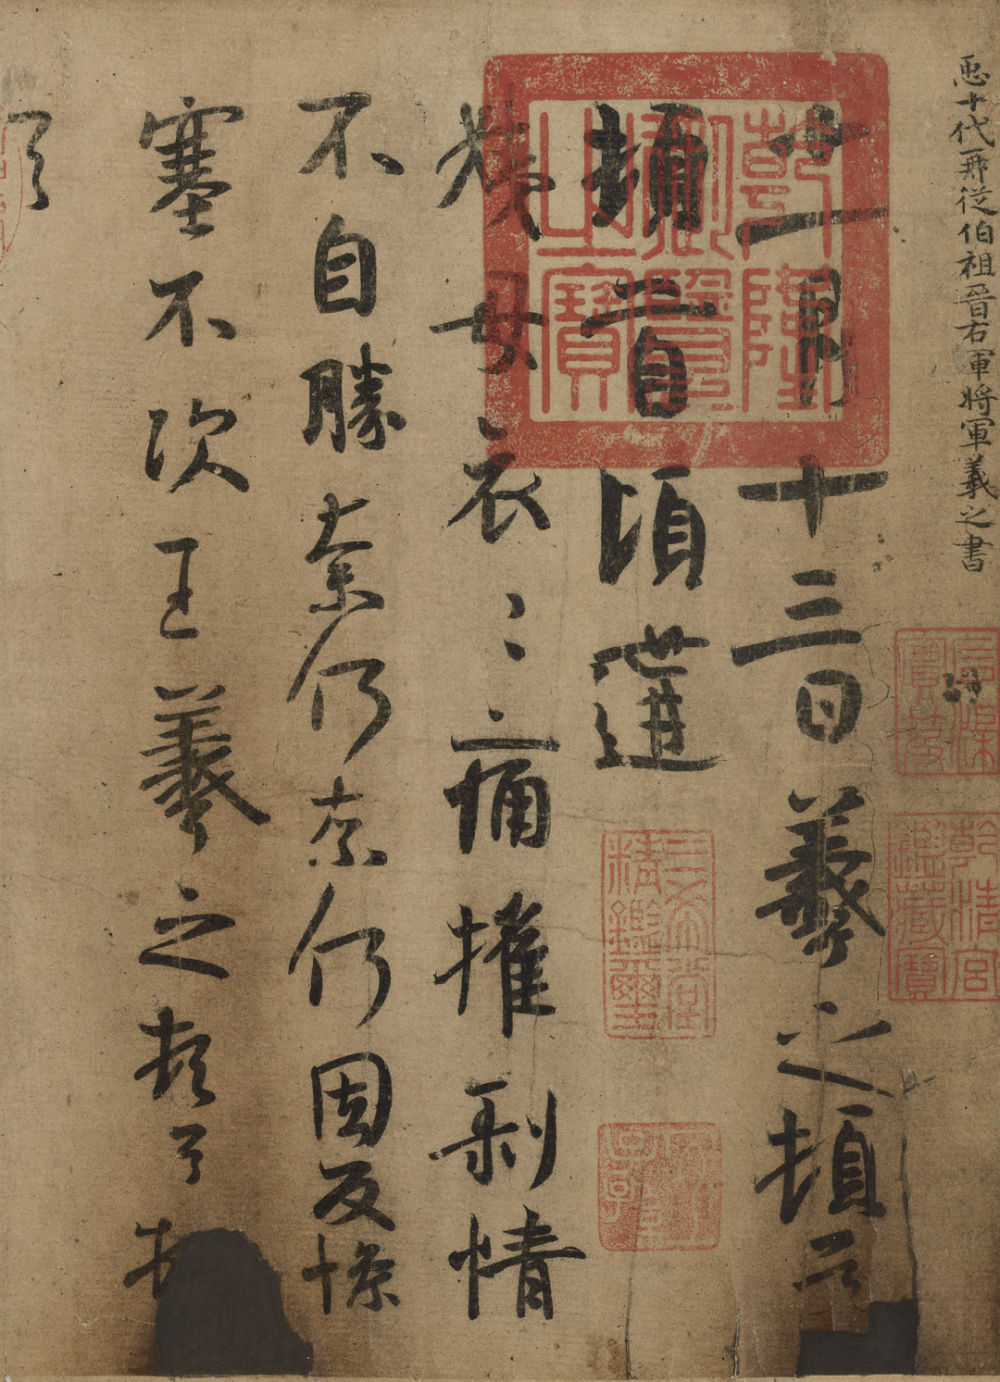 𢘑十代再從伯祖晉右軍將軍羲之書
石渠寶笈
乾清宮鑑藏寶
十一月十三日羲之頓首
頓首頃遘
姨母哀哀痛摧剝情
不自勝奈何奈何因反慘
塞不次王羲之頓首頓
首
乾隆御覽之寶
三希堂精鑑璽
宜子孫